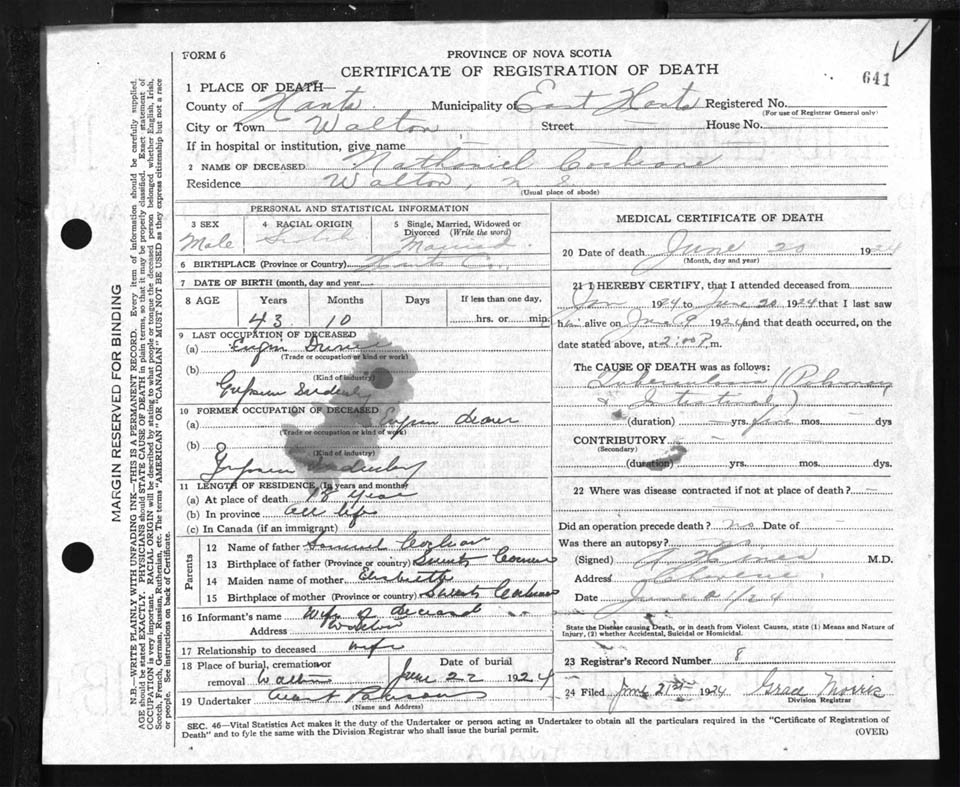 FORM 6
PROVINCE OF NOVA SCOTIA
CERTIFICATE OF REGISTRATION OF DEATH
641
1 PLACE OF DEATH—
County of Hants Municipality of East Hants Registered No.
(For use of Registrar General only)
City or Town Walton Street — House No.
If in hospital or institution, give name
2 NAME OF DECEASED Nathaniel Cochrane
Residence Walton, N S.
(Usual place of abode)
PERSONAL AND STATISTICAL INFORMATION
3 SEX 4 RACIAL ORIGIN 5 Single, Married, Widowed or Divorced (Write the word)
Male Scotch Married
6 BIRTHPLACE (Province or Country) Hants Co.
7 DATE OF BIRTH (month, day and year)
8 AGE Years Months Days If less than one day,
43 10 hrs. or min.
9 LAST OCCUPATION OF DECEASED
(a)
(Trade or occupation or kind or work)
(b)
(Kind of industry)
10 FORMER OCCUPATION OF DECEASED
(a)
(Trade or occupation or kind of work)
(b)
(Kind of industry)
11 LENGTH OF RESIDENCE (In years and months)
(a) At place of death 18 years
(b) In province all life
(c) In Canada (if an immigrant)
Parents
12 Name of father Samuel Cochran
13 Birthplace of father (Province or country)
14 Maiden name of mother Elizabeth
15 Birthplace of mother (Province or country)
16 Informant's name Wife of deceased
Address Walton
17 Relationship to deceased Wife
18 Place of burial, cremation or removal Walton
Date of burial June 22 1924
19 Undertaker
(Name and Address)
MEDICAL CERTIFICATE OF DEATH
20 Date of death June 20 1924
(Month, day and year)
21 I HEREBY CERTIFY, that I attended deceased from
Jan 1924 to June 20 1924 that I last saw
him alive on June 9 1924 and that death occurred, on the
date stated above, at 2:00 P m.
The CAUSE OF DEATH was as follows:
Tuberculosis (Pulmonary
& Intestinal)
(duration) — yrs. mos. — dys
CONTRIBUTORY
(Secondary)
(duration) yrs. mos. dys.
22 Where was disease contracted if not at place of death? —
Did an operation precede death? no Date of —
Was there an autopsy? no
(Signed) M.D.
Address
Date June 21/24
State the Disease causing Death, or in death from Violent Causes, state (1) Means and Nature of
Injury, (2) whether Accidental, Suicidal or Homicidal.
23 Registrar's Record Number 8
24 Filed June 21st 1924 Grace Morris
Division Registrar
SEC. 46—Vital Statistics Act makes it the duty of the Undertaker or person acting as Undertaker to obtain all the particulars required in the "Certificate of Registration of
Death" and to fyle the same with the Division Registrar who shall issue the burial permit. (OVER)
MARGIN RESERVED FOR BINDING
N.B.—WRITE PLAINLY WITH UNFADING INK—THIS IS A PERMANENT RECORD. Every item of information should be carefully supplied.
AGE should be stated EXACTLY. PHYSICIANS should STATE CAUSE OF DEATH in plain terms, so that it may be properly classified. Exact statement of
OCCUPATION is very important. RACIAL ORIGIN will be described by stating to what people or tongue the deceased person belonged whether English, Irish,
Scotch, French, German, Russian, Ruthenian, etc. The terms "AMERICAN" or "CANADIAN" MUST NOT BE USED as they express citizenship but not a race
or people. See instructions on back of Certificate.